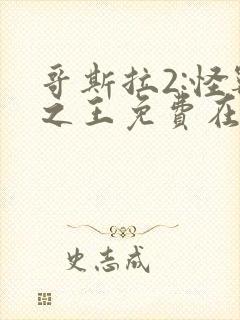 哥斯拉2:怪
之王免費在
史志成